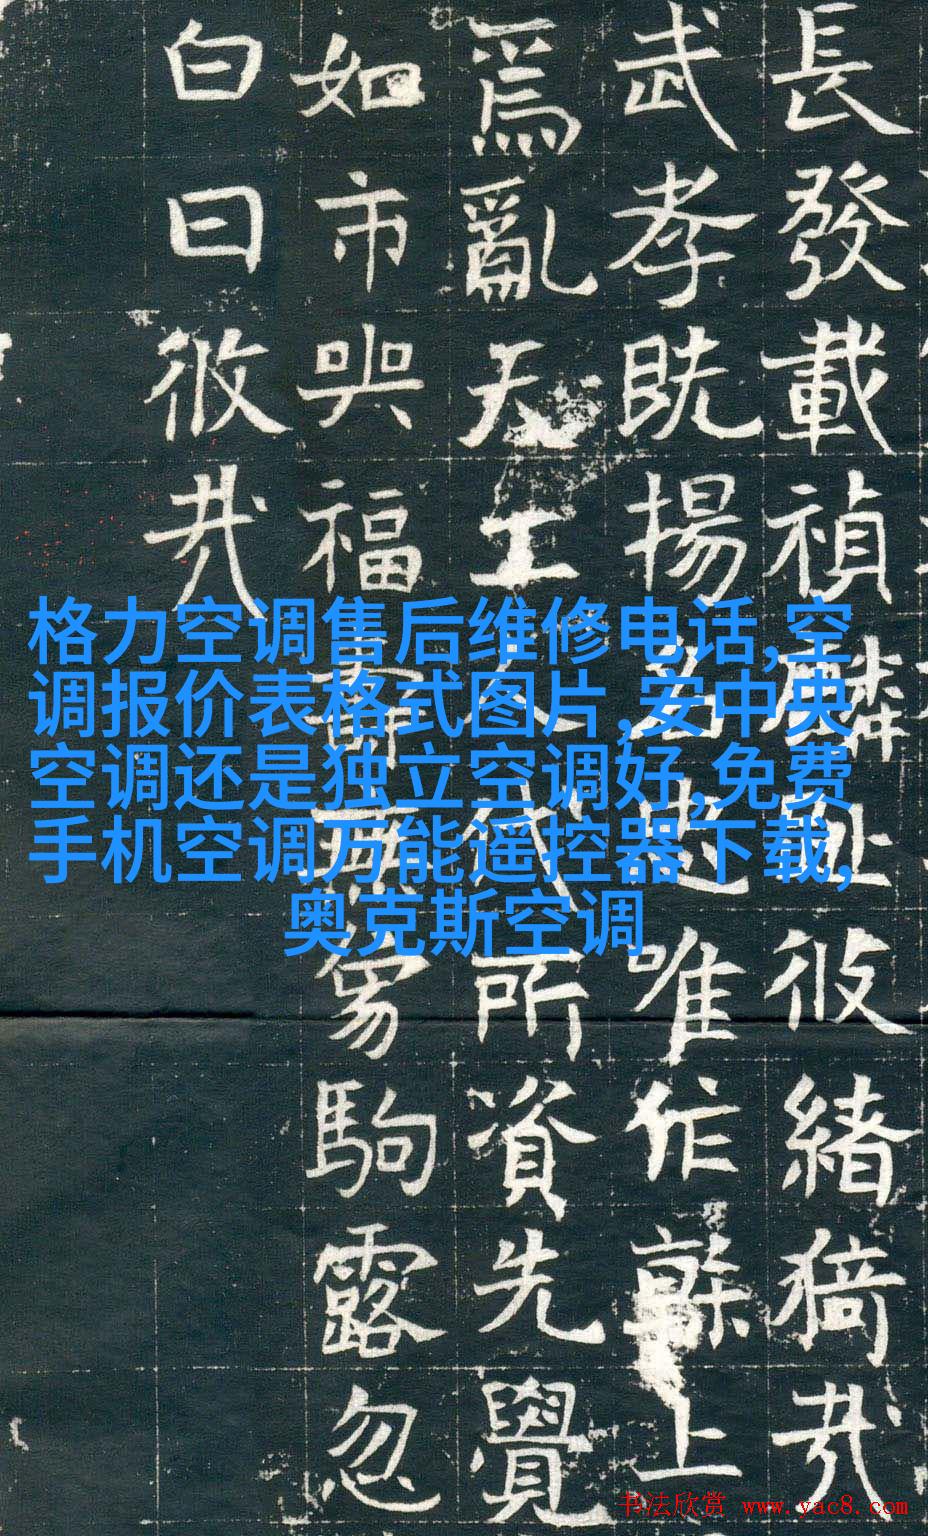 長發載禎麟趾彼緒猗哉
武孝既揚名忠唯作幹上
爲亂天工人代所資先覺
如市與福芻駒露忽
白日攸哉
格力空调售后维修电话,空
调报价表格式图片,安中央
空调还是独立空调好,免费
手机空调万能遥控器下载,
奥克斯空调
书法欣赏 www.yac8.com